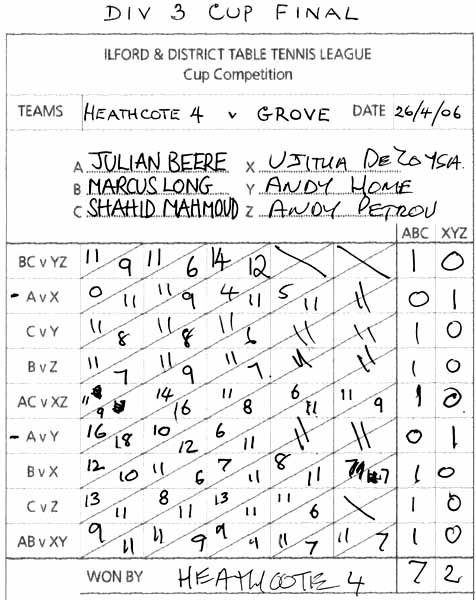 DIV 3 CUP FINAL
ILFORD & DISTRICT TABLE TENNIS LEAGUE
Cup Competition
TEAMS HEATHCOTE 4 v GROVE DATE 26/4/06
A JULIAN BEERE X UJITHA DEZOYSA
B MARCUS LONG Y ANDY HOME
C SHAHID MAHMOUD Z ANDY PETROU
ABC XYZ
BC v YZ 11 9 11 6 14 12 1 0
A v X 0 11 11 9 4 11 5 11 0 1
C v Y 11 8 11 8 11 6 1 0
B v Z 11 7 11 9 11 7 1 0
AC v XZ 11 9 14 16 11 8 6 11 11 9 1 0
A v Y 16 18 10 12 6 11 0 1
B v X 12 10 11 6 7 11 8 11 7 1 0
C v Z 13 11 8 11 13 11 11 6 1 0
AB v XY 9 11 11 9 9 11 7 11 7 1 0
WON BY HEATHCOTE 4 7 2